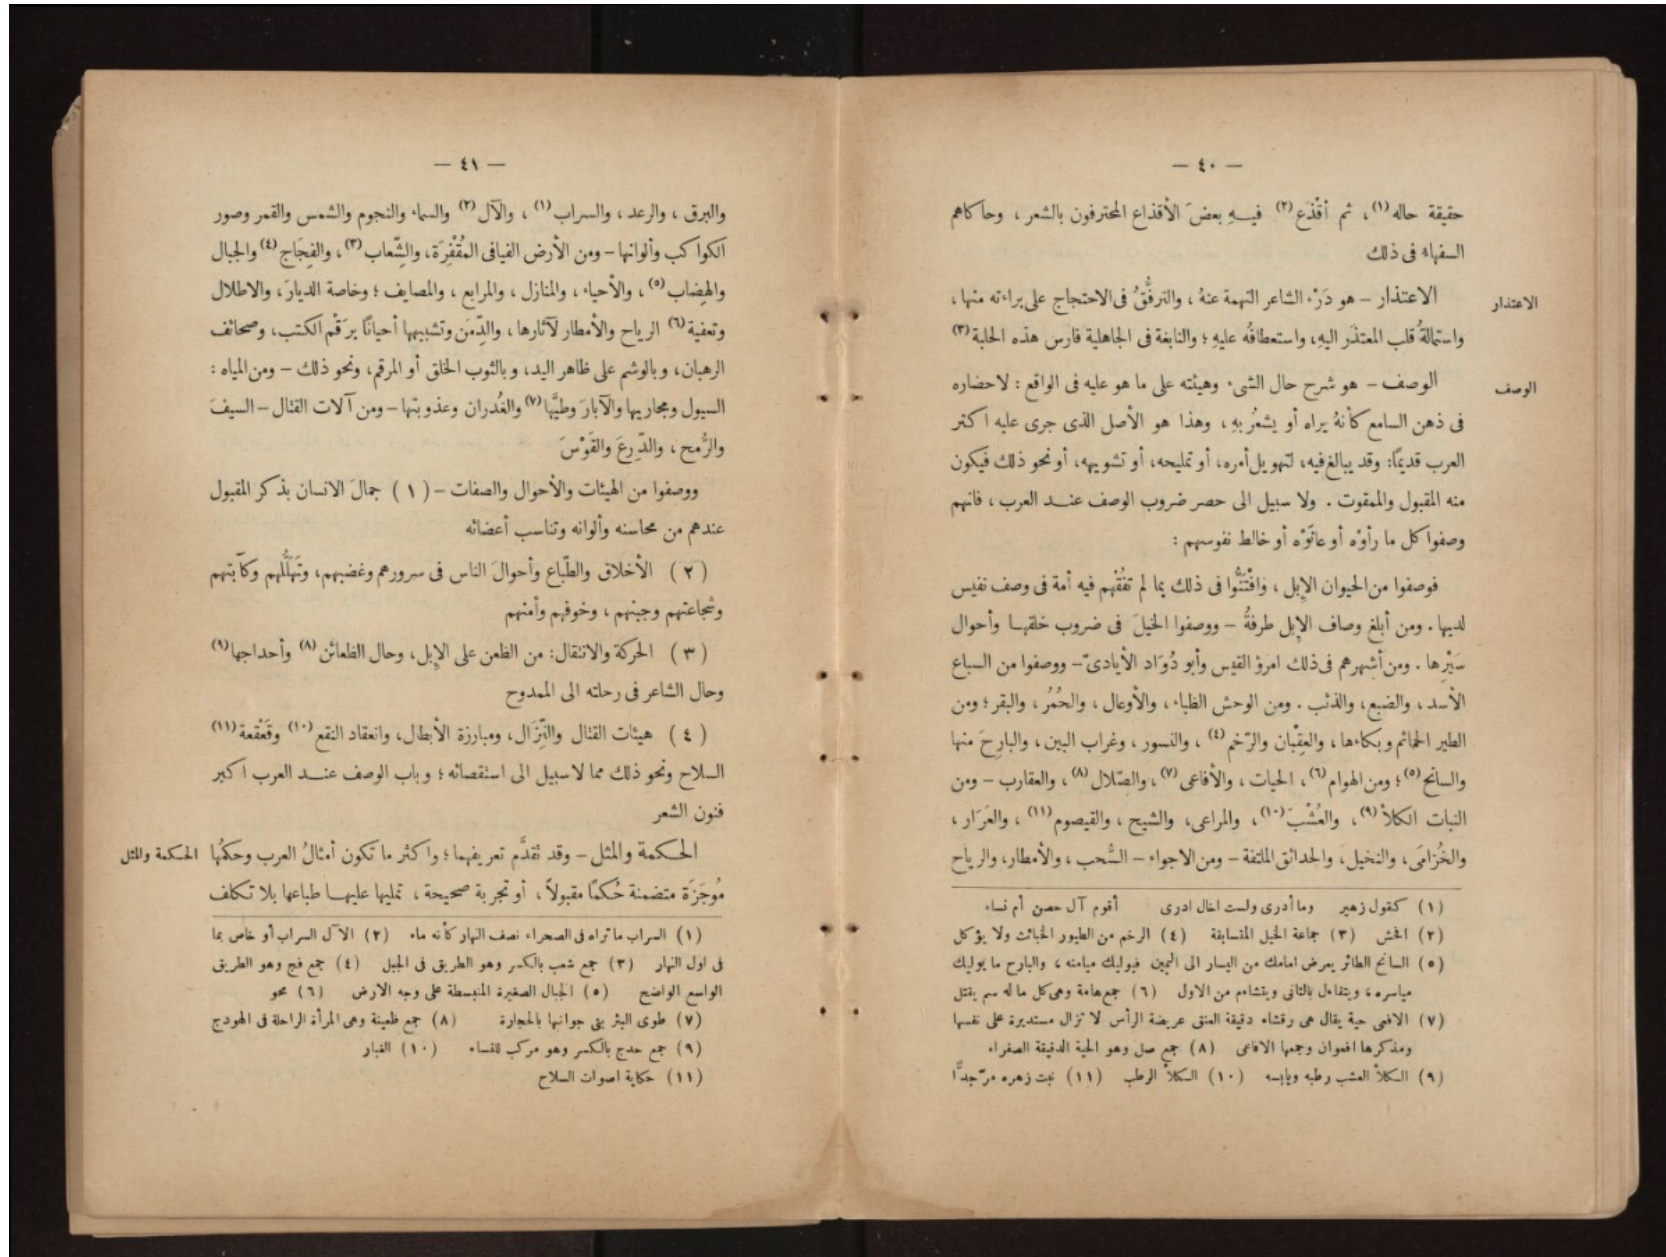 — ٤٠ —
حقيقة حاله (١) ، ثم أقْذَع (٢) فيــهِ بعضَ الأقذاع المحترفون بالشعر ، وحاكاهم
السفهاء فى ذلك
الاعتذار
الاعتذار – هو دَرْء الشاعر التهمة عنهُ ، والترفُّقُ فى الاحتجاج على براءته منها ،
واستمالةُ قلب المعتذَر اليهِ، واستعطافُه عليهِ ؛ والنابغة فى الجاهلية فارس هذه الحلبة (٣)
الوصف
الوصف – هو شرح حال الشىء وهيئته على ما هو عليه فى الواقع : لاحضاره
فى ذهن السامع كأنهُ يراه أو يشعُر بهِ ، وهذا هو الأصل الذى جرى عليه اكثر
العرب قديمًا: وقد يبالغ فيه، لتهويل أمره، أو تمليحه، أو تشويهه، أو نحو ذلك فيكون
منه المقبول والممقوت . ولا سبيل الى حصر ضروب الوصف عنــد العرب ، فانهم
وصفوا كل ما رأوْه أو عانَوْه أو خالط نفوسهم :
فوصفوا من الحيوان الإِبل ، وَافْتَنُّوا فى ذلك بما لم تفُقْهم فيه أمة فى وصف نفيس
لديها . ومن أبلغ وصاف الإِبل طرفةُ – ووصفوا الخيلَ فى ضروب خلقهــا وأحوال
سَيْرِها . ومن أشهرهم فى ذلك امرؤ القيس وأبو دُوَاد الأيادىّ – ووصفوا من السباع
الأسد ، والضبع، والذئب . ومن الوحش الظباء ، والأوعال ، والحُمُر ، والبقر ؛ ومن
الطير الحمائم وبكاءها ، والعِقْبان والرَّخم (٤) ، والنسور ، وغراب البين ، والبارِحَ منها
والسانح (٥) ؛ ومن الهوام (٦) ، الحيات ، والأفاعى (٧) ، والصّلال (٨) ، والعقارب – ومن
النبات الكلأ (٩) ، والعُشْبَ (١٠) ، والمراعى، والشيح ، والقيصوم (١١) ، والعَرَار ،
والخُزامَى، والنخيل، والحدائق الملتفة – ومن الاجواء – السُّحب ، والأمطار، والرياح
(١) كقول زهير وما أدرى ولست اخال ادرى أقوم آل حصن أم نساء
(٢) الفحش (٣) جماعة الخيل المتسابقة (٤) الرخم من الطيور الخبائث ولا يؤكل
(٥) السانح الطائر يمرض امامك من اليسار الى اليمين فيوليك ميامنه ، والبارح ما يوليك
مياسره ، ويتفاءل بالثانى ويتشاءم من الاول (٦) جمع هامة وهى كل ما له سم يقتل
(٧) الافعى حية يقال هى رقشاء دقيقة العنق عريضة الرأس لا تزال مستديرة على نفسها
ومذكرها افعوان وجمعها الافاعى (٨) جمع صل وهو الحية الدقيقة الصفراء
(٩) الكلأ العشب رطبه ويابسه (١٠) الكلأ الرطب (١١) نبت زهره مرّ جدًّا
— ٤١ —
والبرق ، والرعد ، والسراب (١) ، والآل (٢) والسماء والنجوم والشمس والقمر وصور
الكواكب وألوانها – ومن الأرض الفيافى المُقْفِرَة، والشِّعاب (٣) ، والفِجَاج (٤) والجبال
والهِضاب (٥) ، والأحياء ، والمنازل ، والمرابع ، والمصايف ؛ وخاصة الديارَ، والاطلال
وتعفية (٦) الرياح والأمطار لآثارها ، والدِّمَن وتشبيهها أحيانًا برَقْم الكتب، وصحائف
الرهبان، وبالوشم على ظاهر اليد، وبالثوب الخلق أو المرقم، ونحو ذلك – ومن المياه :
السيول ومجاريها والآبارَ وطيَّها (٧) والغُدران وعذوبتها – ومن آلات القتال – السيفَ
والرُّمح ، والدِّرعَ والقَوْسَ
ووصفوا من الهيئات والأحوال والصفات – (١) جمالَ الانسان بذكر المقبول
عندهم من محاسنه وألوانه وتناسب أعضائه
(٢) الأخلاق والطِّباع وأحوالَ الناس فى سرورهم وغضبهم، وتَهَلُّلهم وكآبتهم
وشجاعتهم وجبنهم ، وخوفهم وأمنهم
(٣) الحركة والانتقال: من الظعن على الإِبل، وحال الظعائن (٨) وأحداجها (٩)
وحال الشاعر فى رحلته الى الممدوح
(٤) هيئات القتال والنِّزَال، ومبارزة الأبطال، وانعقاد النقع (١٠) وقَعْقعة (١١)
السلاح ونحو ذلك مما لا سبيل الى استقصائه ؛ وباب الوصف عنــد العرب اكبر
فنون الشعر
الحكمة والمثل
الحكمة والمثل – وقد تقدَّم تعريفهما ؛ واكثر ما تكون أمثالُ العرب وحكمُها
مُوجَزَة متضمنة حُكمًا مقبولاً ، أو تجربة صحيحة ، تمليها عليهــا طباعها بلا تكلف
(١) السراب ما تراه فى الصحراء نصف النهار كأنه ماء (٢) الآل السراب أو خاص بما
فى اول النهار (٣) جمع شعب بالكسر وهو الطريق فى الجبل (٤) جمع فج وهو الطريق
الواسع الواضح (٥) الجبال الصغيرة المنبسطة على وجه الارض (٦) محو
(٧) طوى البئر بنى جوانبها بالحجارة (٨) جمع ظعينة وهى المرأة الراحلة فى الهودج
(٩) جمع حدج بالكسر وهو مركب للنساء (١٠) الغبار
(١١) حكاية اصوات السلاح